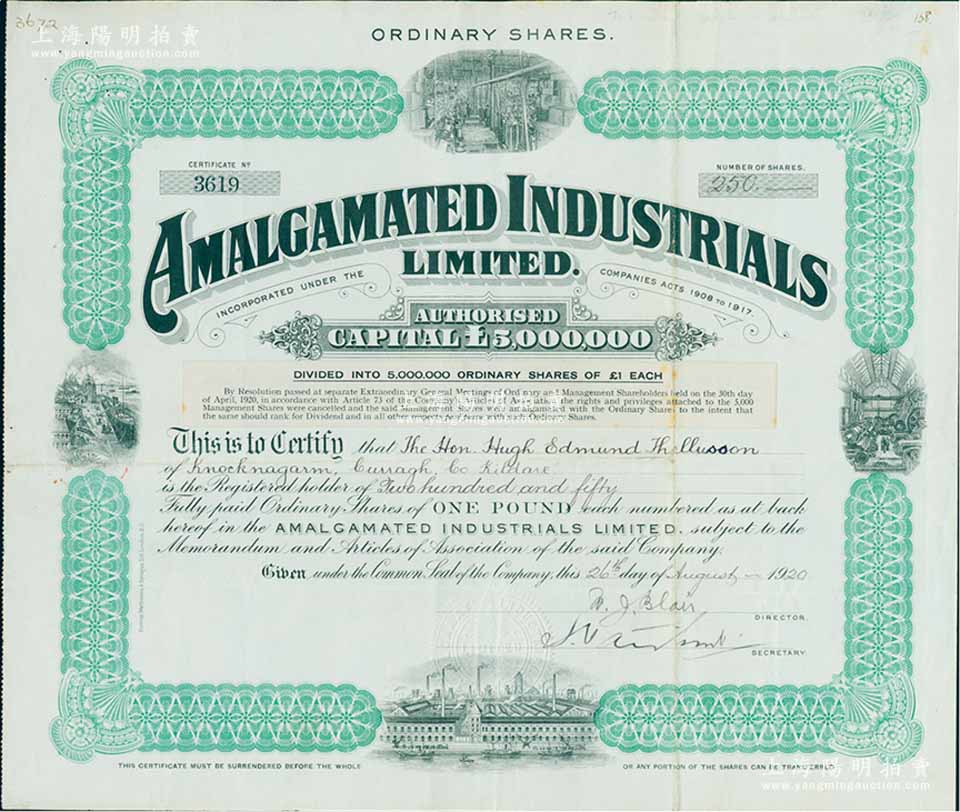 3622
158
上海陽明拍賣
www.yangmingauction.com
ORDINARY SHARES.
CERTIFICATE No
3619
NUMBER OF SHARES.
250.
AMALGAMATED INDUSTRIALS
LIMITED.
INCORPORATED UNDER THE COMPANIES ACTS 1908 TO 1917.
AUTHORISED
CAPITAL £5,000,000
DIVIDED INTO 5,000,000 ORDINARY SHARES OF £1 EACH
By Resolution passed at separate Extraordinary General Meetings of Ordinary and Management Shareholders held on the 30th day
of April, 1920, in accordance with Article 73 of the Company's Articles of Association, the rights and privileges attached to the 5,000
Management Shares were cancelled and the said Management Shares were amalgamated with the Ordinary Shares to the intent that
the same should rank for Dividend and in all other respects pari passu with such Ordinary Shares.
上海陽明拍賣
www.yangmingauction.com
This is to Certify that The Hon. Hugh Edmund Thellusson
of Knocknagarm, Curragh, Co Kildare
is the Registered holder of Two hundred and fifty
Fully paid Ordinary Shares of ONE POUND each numbered as at back
hereof in the AMALGAMATED INDUSTRIALS LIMITED. subject to the
Memorandum and Articles of Association of the said Company.
Given under the Common Seal of the Company, this 26th day of August 1920
W. J. Blair
DIRECTOR.
SECRETARY.
THIS CERTIFICATE MUST BE SURRENDERED BEFORE THE WHOLE OR ANY PORTION OF THE SHARES CAN BE TRANSFERRED.
上海陽明拍賣
www.yangmingauction.com